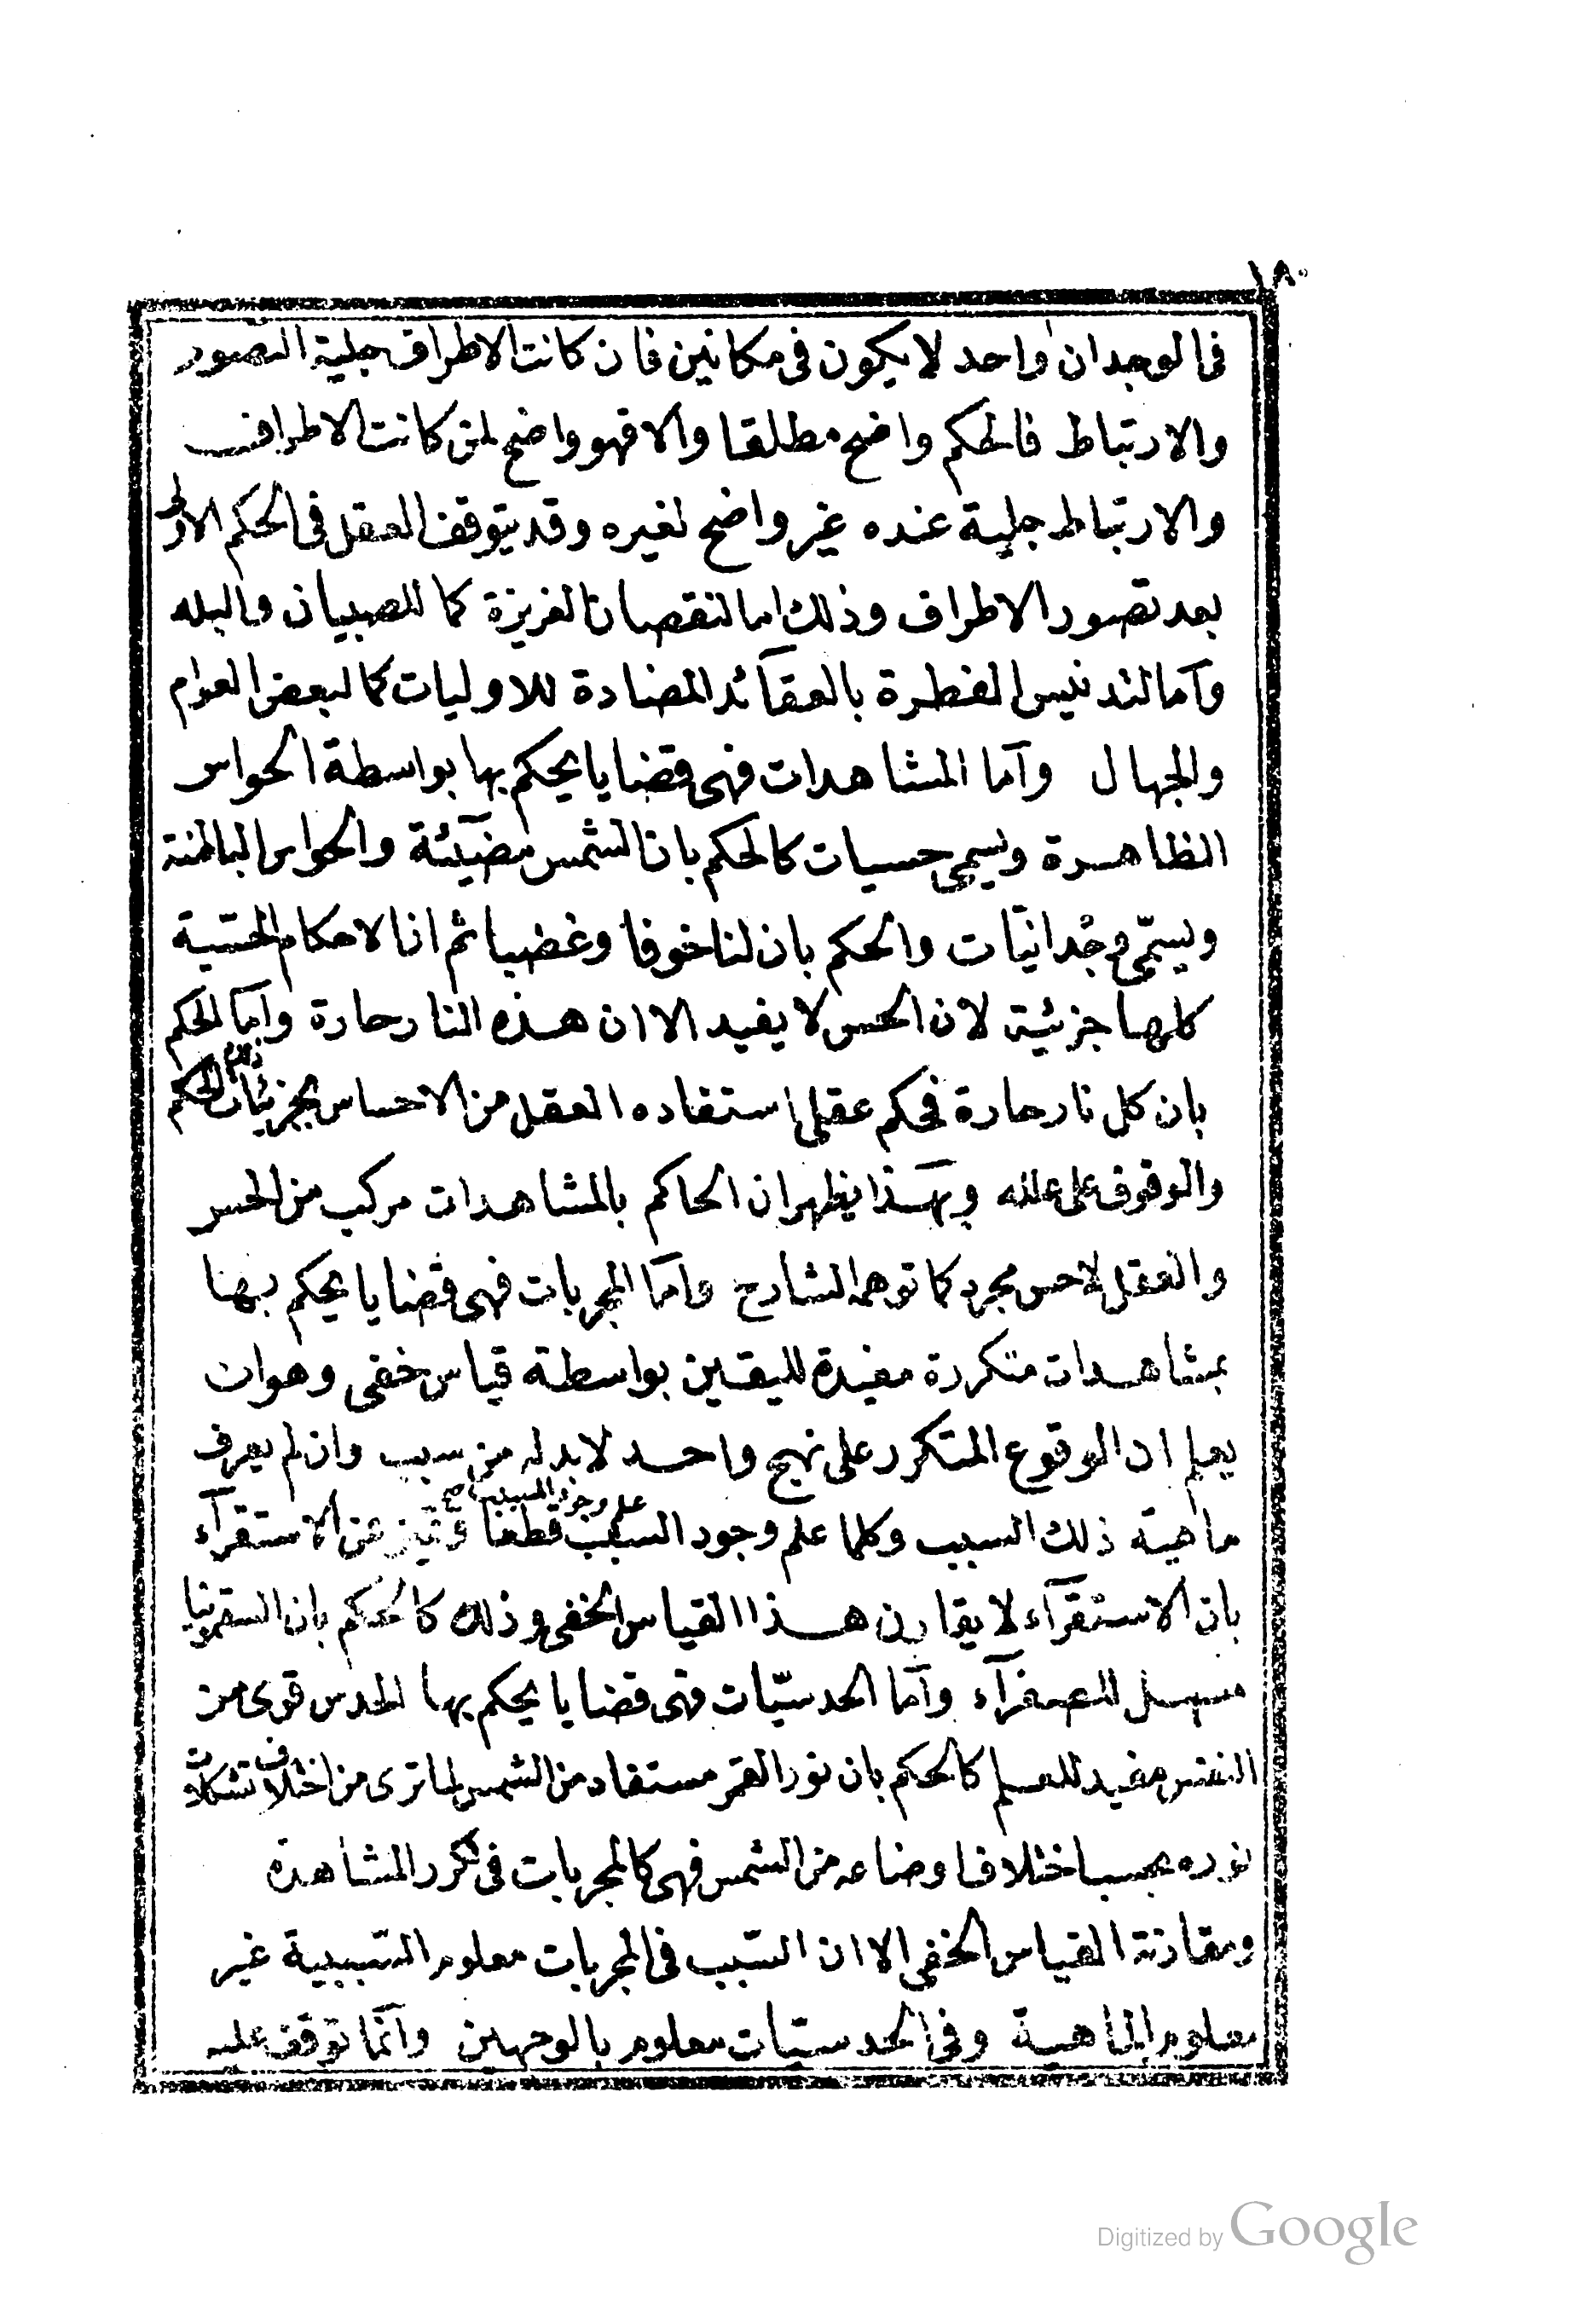 ١٨٠
فى الوجدان واحد لا يكون فى مكانين فان كانت الاطراف جلية التصور
والارتباط فالحكم واضح مطلقا والا فهو واضح لمن كانت الاطراف
والارتباط جلية عنده غير واضح لغيره وقد يتوقف العقل فى الحكم الاولى
بعد تصور الاطراف وذلك اما لنقصان الغريزة كما للصبيان والبله
وآما لتدنيس الفطرة بالعقآئد المضادة للاوليات كما لبعض العوام
والجهال وآما المشاهدات فهى قضايا يحكم بها بواسطة الحواس
الظاهرة ويسمى حسيات كالحكم بان الشمس مضيئة والحواس الباطنة
ويسمّى وجدانيّات والحكم بان لنا خوفا وغضبا ثم ان الاحكام الحسّية
كلها جزئية لان الحس لا يفيد الا ان هذه النار حارة وآما الحكم
بان كل نار حارة فحكم عقلى استفاده العقل من الاحساس بجزئيات ذلك الحكم
والوقوف على علله وبهذا يظهر ان الحاكم بالمشاهدات مركب من الحس
والعقل لا حس مجرد كما توهمه الشارح وآما المجربات فهى قضايا يحكم بها
بمشاهدات متكررة مفيدة لليقين بواسطة قياس خفى وهو ان
يعلم ان الوقوع المتكرر على نهج واحد لا بد له من سبب وان لم يعرف
ماهية ذلك السبب وكلما علم وجود السبب علم وجود المسبب صح قطعا وتميز عن الاستقرآء
بان الاستقرآء لا يقارن هذا القياس الخفى وذلك كالحكم بان السقمونيا
مسهل للصفرآء وآما الحدسيّات فهى قضايا يحكم بها لحدس قوى من
النفس مفيد للعلم كالحكم بان نور القمر مستفاد من الشمس لما ترى من اختلاف تشكلات
نوره بحسب اختلاف اوضاعه من الشمس فهى كالمجربات فى تكرر المشاهدة
ومقارنة القياس الخفى الا ان السّبب فى المجربات معلوم السّببية غير
معلوم الماهية وفى الحدسيّات معلوم بالوجهين وآنّما توقف عليه
Digitized by Google